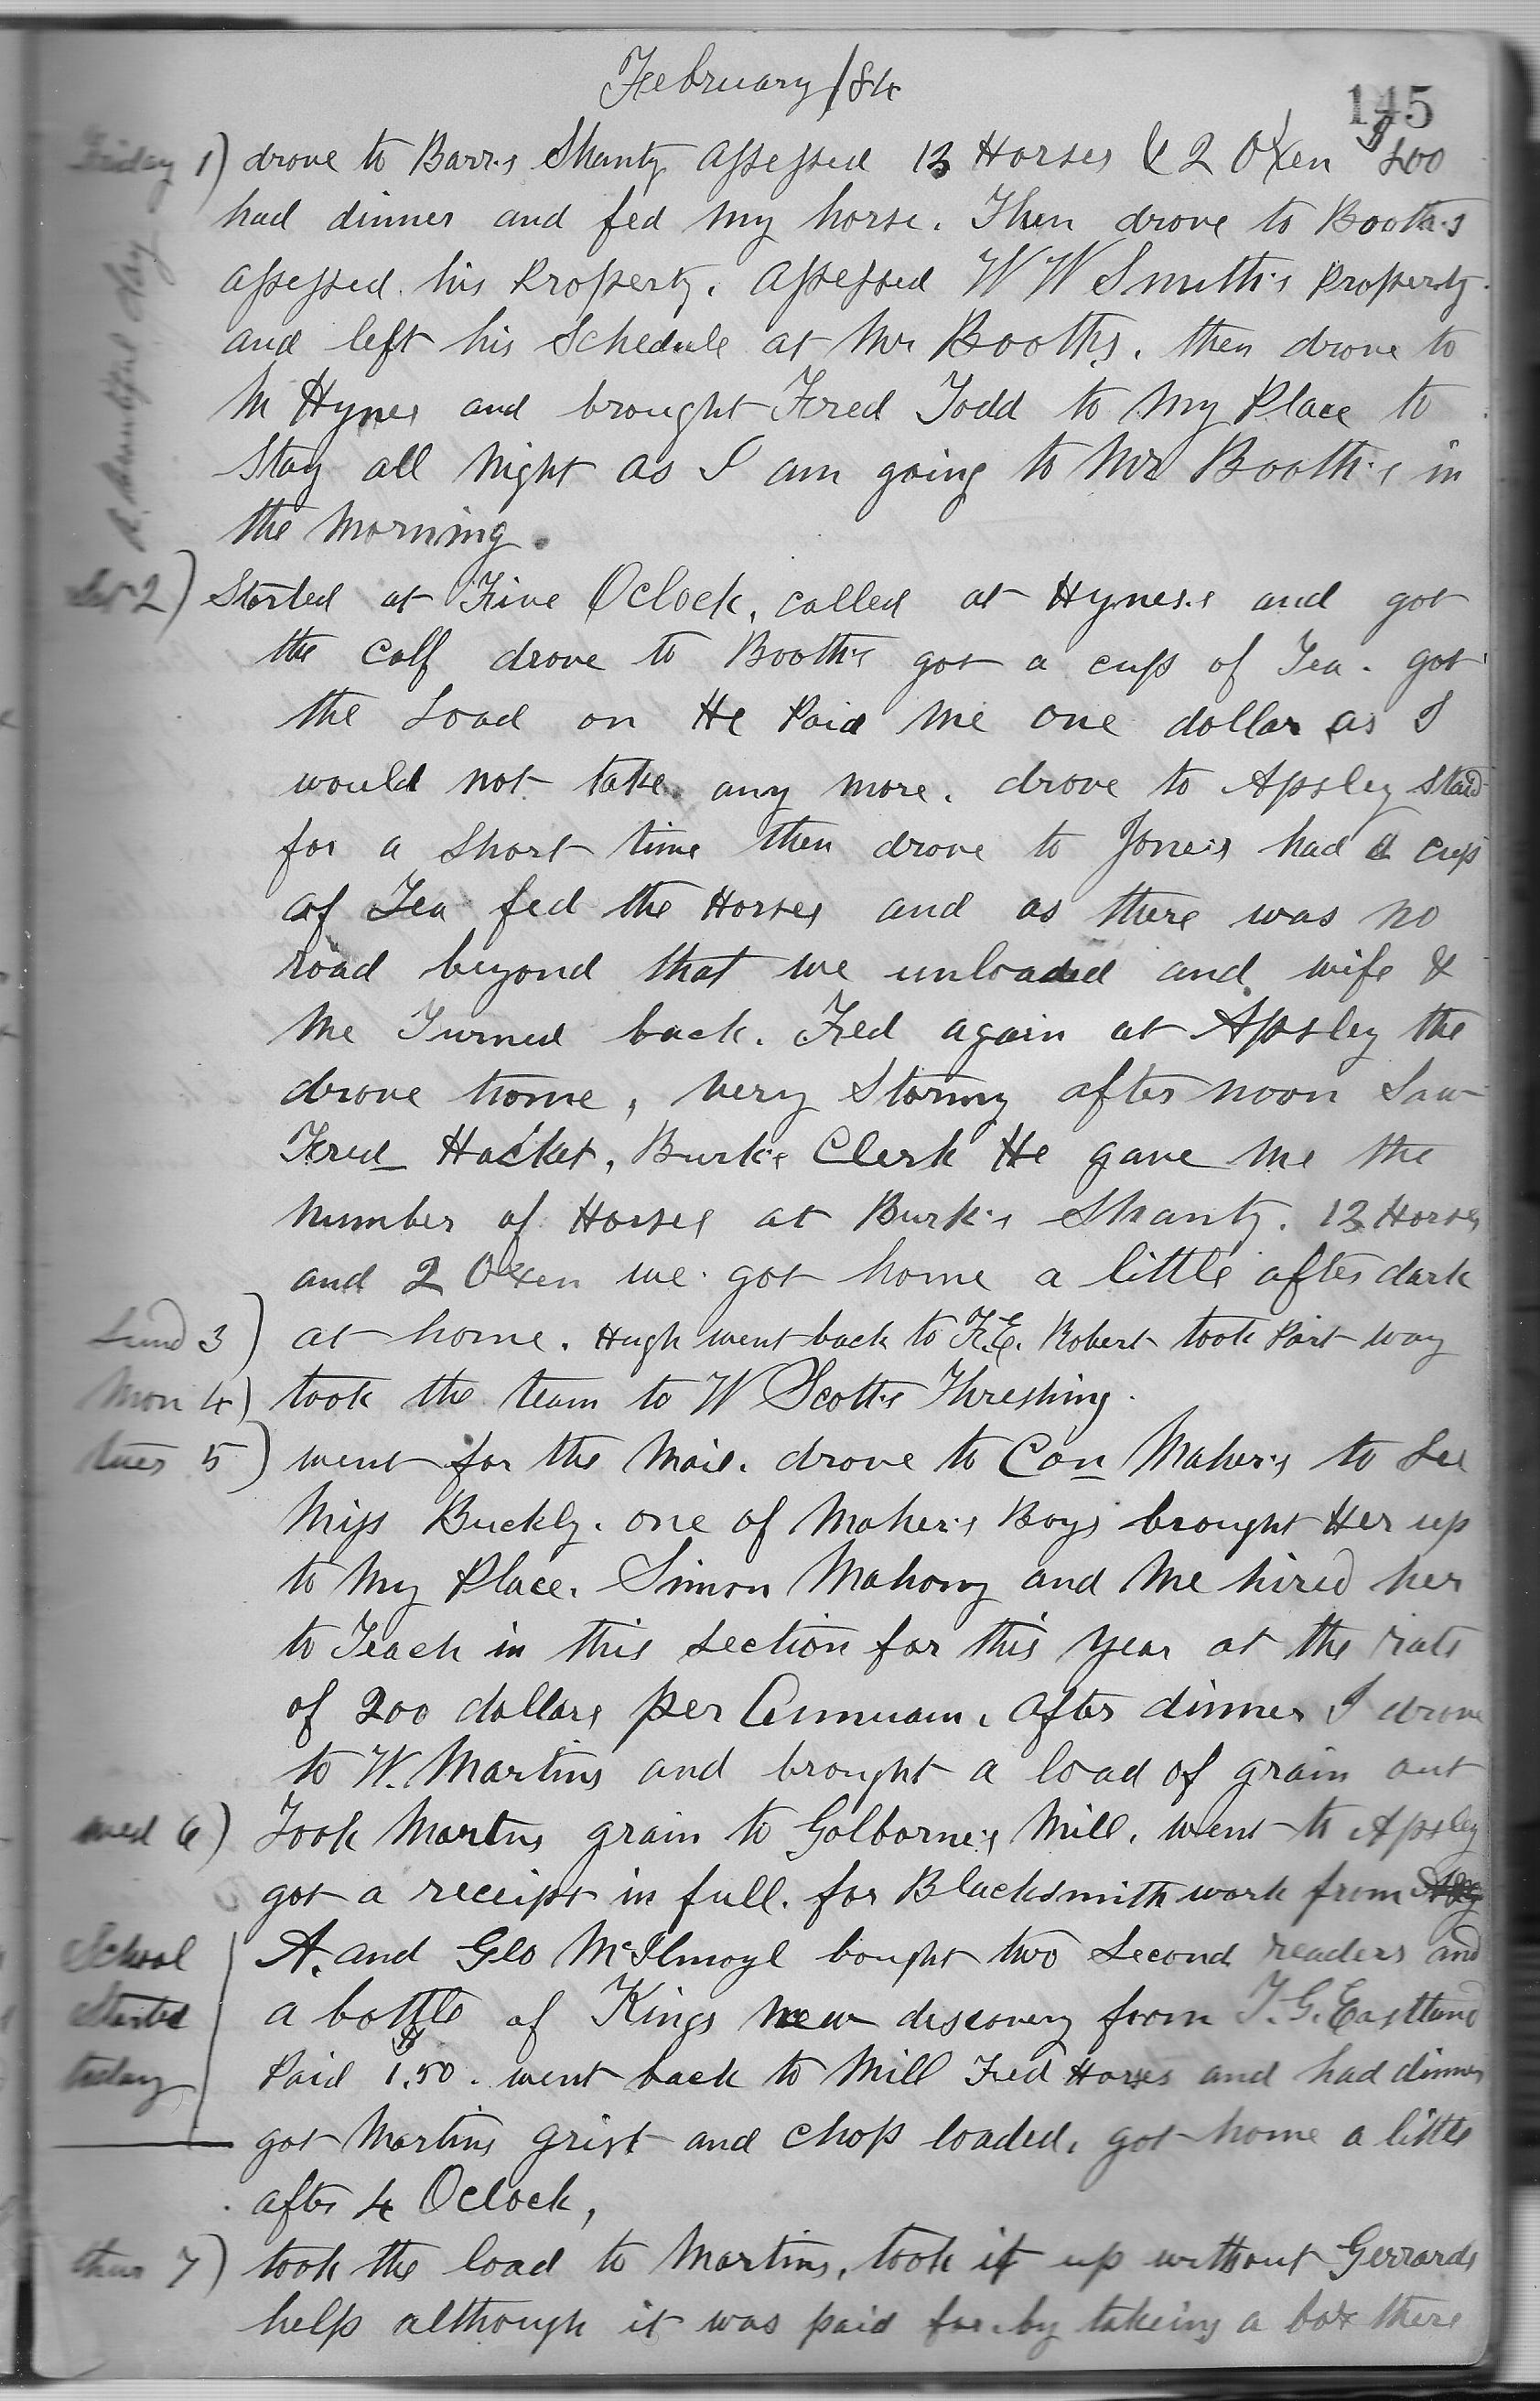 February /84
145
Friday 1) drove to Barr's Shanty assessed 13 Horses & 2 Oxen $800
had dinner and fed my horse. Then drove to Booth's
assessed his Property. assessed W W Smith's Property
and left his Schedule at Mr Booths. then drove to
M Hynes and brought Fred Todd to my Place to
Stay all Night as I am going to Mr Booth's in
the Morning.
A Beautiful Day
Sat 2) Started at Five Oclock, called at Hynes's and got
the calf drove to Booth's got a cup of Tea. got
the Load on He Paid Me One dollar as I
would not take any more. drove to Apsley staid
for a Short time then drove to Jone's had a cup
of Tea fed the Horses and as there was no
road beyond that we unloaded and wife &
Me Turned back. Fed again at Apsley the
drove home, very Stormy after noon Saw
Fred Hacket, Burk's Clerk He gave Me the
Number of Horses at Burk's Shanty. 12 Horses
and 2 Oxen we got home a little after dark
Sund 3) at home. Hugh went back to F.E. Robert took Part way
Mon 4) took the team to W Scott's Threshing.
tues 5) went for the Mail. drove to Con Maher's to See
Miss Buckly. one of Maher's Boys brought Her up
to My Place. Simon Mahony and Me hired her
to Teach in this Section for this Year at the rate
of 200 dollars per Annuam. after dinner I drove
to W. Martins and brought a load of grain out
wed 6) Took Martins grain to Golborne's Mill. went to Apsley
got a receipt in full. for Blacksmith work from
School A. and Geo McIlmoyl bought two Second readers and
Started a bottle of Kings New discovery from T.G. Eastland
today Paid $1.50. went back to Mill Fed Horses and had dinner
got Martins grist and chop loaded. got home a little
after 4 Oclock,
thur 7) took the load to Martins, took it up without Gerrards
help although it was paid for by takeing a box there